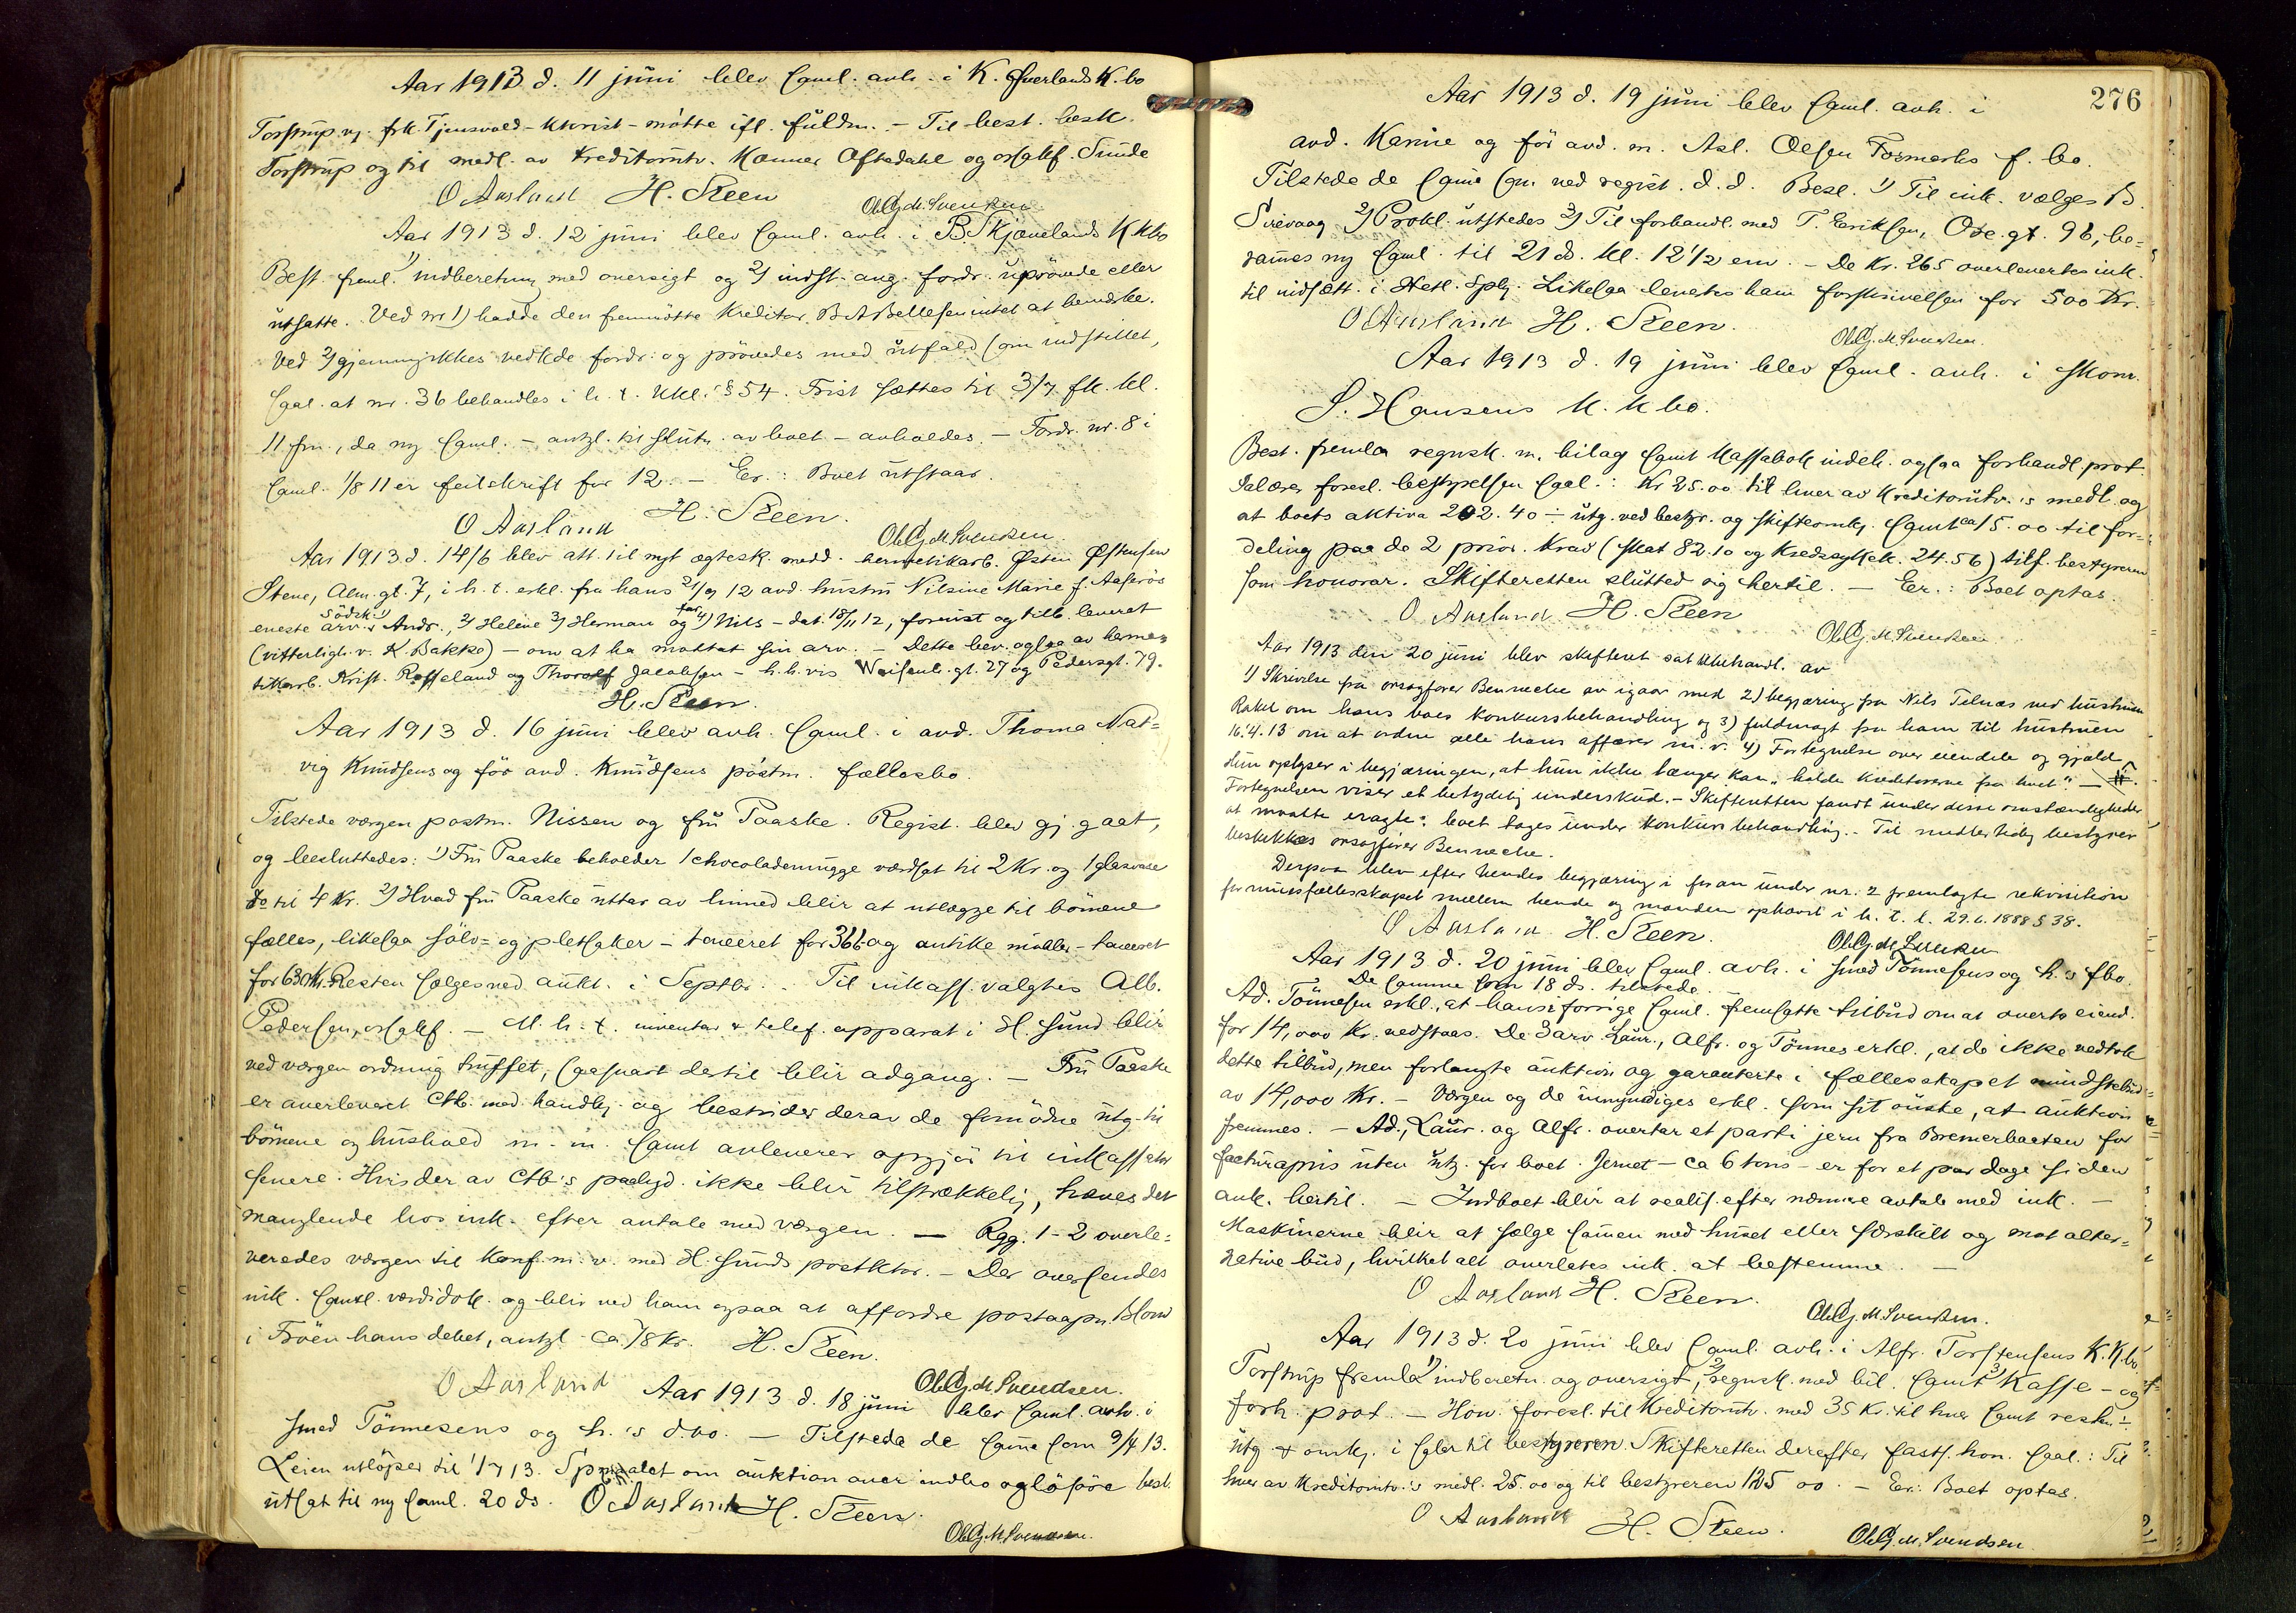 Aar 1913 d. 11 juni blev saml. avh. i K. Øverlands K. bo
Torstrup og frk. Tjensvold - Khrist - mötte ifl. fuldm. - Til best. besk.
Torstrup og til medl. av Kreditorutv. Kanner Oftedahl og orsakf. Sunde
O Aasland H. Steen Ole G. M. Svendsen
Aar 1913 d. 12 juni blev saml. avh. i B. Skjævelands K kbo
Best. freml. 1) indberetning med oversigt og 2) indst. ang. fordr. uprövede eller
utsatte. Ved nr 1) hadde den fremmötte kreditor B A Bellesen intet at bemerke.
Ved 2) gjennemgikkes vedkde fordr. og prövedes med utfald som indstillet,
saal. at nr. 36 behandles i h. t. Kkl.'s § 54. Frist sættes til 3/7 fk. kl.
11 fm., da ny saml. - antgl. til slutn. av boet - avholdes. - Fordr. nr. 8 i
saml. 1/8 11 er feilskrift for 12. - Er.: Boet utstaar.
O Aasland H. Steen. Ole G. M. Svendsen.
Aar 1913 d. 14/6 blev att. til nyt ægtesk. medd. hermetikarb. Østen Østensen
Stene, Alm. gt. 7, i h. t. erkl. fra hans 21/9 12 avd. hustru Nilsine Marie f. Aaserös
eneste södsk. arv.'s 1) Andr., 2) Helene 3) Herman og 4) Nils - dat. 18/11 12, forevist og tilb. leveret
(vitterligh. v. K. Bakke) - om at ha mottat sin arv. - Dette bev. ogsaa av herme-
tikarb. Krist. Rosseland og Thorolf Jacobsen - h. h. vis Waisenh. gt. 27 og Pedersgt. 79.
H. Steen.
Aar 1913 d. 16 juni blev avh. saml. i avd. Thoma Nat-
vig Knudsens og för avd. Knudsens postm. fællesbo.
Tilstede vergen postm. Nissen og fru Paaske. Regist. blev gj.gaat,
og besluttedes: 1) Fru Paaske beholder 1 chocolademugge værdsat til 2 Kr. og 1 glasvase
do til 4 Kr. 2) Hvad fru Paaske uttar av linned blir at utlægge til börnene
fælles, likesaa sölv- og pletsaker - taxeret for 366 - og antike möbler - taxeret
for 630 Kr. Resten sælges ved aukt. i Septbr. - Til inkass. valgtes Alb.
Pedersen, orsakf. - M. h. t. inventar & telef. apparat i H. sund blir
ved vergen ordning truffet, saasnart dertil blir adgang. - Fru Paaske
er overleveret Ctb. med handlg. og bestrider derav de fornödne utg. til
börnene og hushold m. m. samt avleverer opgjör til inkassator
senere. Hvis der av Ctb's paalyd. ikke blir tilstrækkelig, hæves det
manglende hos ink. efter avtale med vergen. - Rgg. 1-2 overle-
veredes vergen til Konf. m. v. med H. sunds postktor. - Der oversendes
ink. samtl. værdidok. og blir ved ham ogsaa at affordre postaapn. Blom
i Fröen hans debet, antgl. ca 78 Kr. H. Steen.
O Aasland Ole G. M. Svendsen.
Aar 1913 d. 18 juni blev saml. avh. i
smed Tönnesens og h.'s d.bo. - Tilstede de samme som 9/4 13.
Leien utlöper til 1/7 13. Spmaalet om auktion over indbo og lösöre besl.
utsat til ny saml. 20 ds. O Aasland H. Steen.
Ole G. M. Svendsen.
276
Aar 1913 d. 19 juni blev saml. avh. i
avd. Karine og för avd. m. Asl. Olsen Formarks f. bo.
Tilstede de samme som ved regist. d. d. Besl. 1) Til ink. vælges B.
Sirevaag 2) Prokl. utstedes 3) Til forhandl. med T. Eriksen, Ose. gt. 96, be-
rammes ny saml. til 21 ds. kl. 12 1/2 em. - De Kr. 265 overlevertes ink.
til indsætt. i Hetl. Spb. Likesaa levertes ham forskrivelsen for 500 Kr.
O Aasland H. Steen. Ole G. M. Svendsen.
Aar 1913 d. 19 juni blev saml. avh. i skom.
S. Hansens K. k bo.
Best. fremla regnsk. m. bilag samt Kassabok indeh. ogsaa forhandl. prot.
Salærer foresl. bestyrelsen saal.: Kr 25.00 til hver av Kreditorutv.'s medl. og
at boets aktiva 202.40 ÷ utg. ved bestyr. og skifteomkg. samt ca 15.00 til for-
deling paa de 2 prior. krav (skat 82.10 og Kredssykek. 24.56) tilf. bestyreren
som honorar. Skifteretten sluttet sig hertil. - Er.: Boet optas.
O Aasland H. Steen Ole G. M. Svendsen
Aar 1913 den 20 juni blev skifteret sat til behandl. av
1) Skrivelse fra orsagfører Benneche av igaar med 2) begjæring fra Nils Telnæs ved hustruen
Rakel om hans boes konkursbehandling og 3) fuldmagt fra ham til hustruen
16.4.13 om at ordne alle hans affærer m. v. 4) Fortegnelse over eiendele og gjæld.
Hun oplyser i begjæringen, at hun ikke længer kan "holde kreditorerne fra livet". -
Fortegnelsen viser et betydelig underskud. - Skifteretten fandt under disse omstændigheder
at maatte eragte: boet tages under konkursbehandling. - Til midlertidig bestyrer
beskikkes orsagfører Benneche.
Derpaa blev efter hendes begjæring i foran under nr. 2 fremlagte rekvisition
formuesfællesskapet mellem hende og manden ophævet i h. t. l. 29.6.1888 § 38.
O Aasland H. Steen. Ole G. M. Svendsen
Aar 1913 d. 20 juni blev saml. avh. i smed Tönnesens og h.'s fbo.
De samme som 18 ds. tilstede.
Ad. Tönnesen erkl., at hans i forrige saml. fremsatte tilbud om at overta eiend.
for 14,000 Kr. vedstaas. De 3 arv. Laur., Alfr. og Tönnes erkl., at de ikke vedtok
dette tilbud, men forlangte auktion og garanterte i fællesskapet mindstebud
av 14,000 Kr. - Vergen og de umyndiges erkl. som sit önske, at auktion
fremmes. - Ad., Laur. og Alfr. overtar et parti jern fra Bremerhaven for
facturapris uten utg. for boet. Jernet - ca 6 tons - er for et par dage siden
ank. hertil. - Indboet blir at realis. efter nærmere avtale med ink. -
Maskinerne blir at sælge sammen med huset eller særskilt og mot alter-
native bud, hvilket alt overlates ink. at bestemme. -
O Aasland H. Steen. Ole G. M. Svendsen.
Aar 1913 d. 20 juni blev saml. avh. i Alfr. Torstensens K. K. bo
Torstrup fremla 1) indberetn. og oversigt, 2) regnsk. med bil. samt 3) Kasse - og
forh. prot. - Hon. foresl. til Kreditorutv. med 35 Kr. til hver samt rest. ÷
utg. & omkg. i salær til bestyreren. Skifteretten derefter fasts. hon. saal.: Til
hver av Kreditorutv.'s medl. 25.00 og til bestyreren 125 00. - Er.: Boet optas.
O Aasland H. Steen. Ole G. M. Svendsen